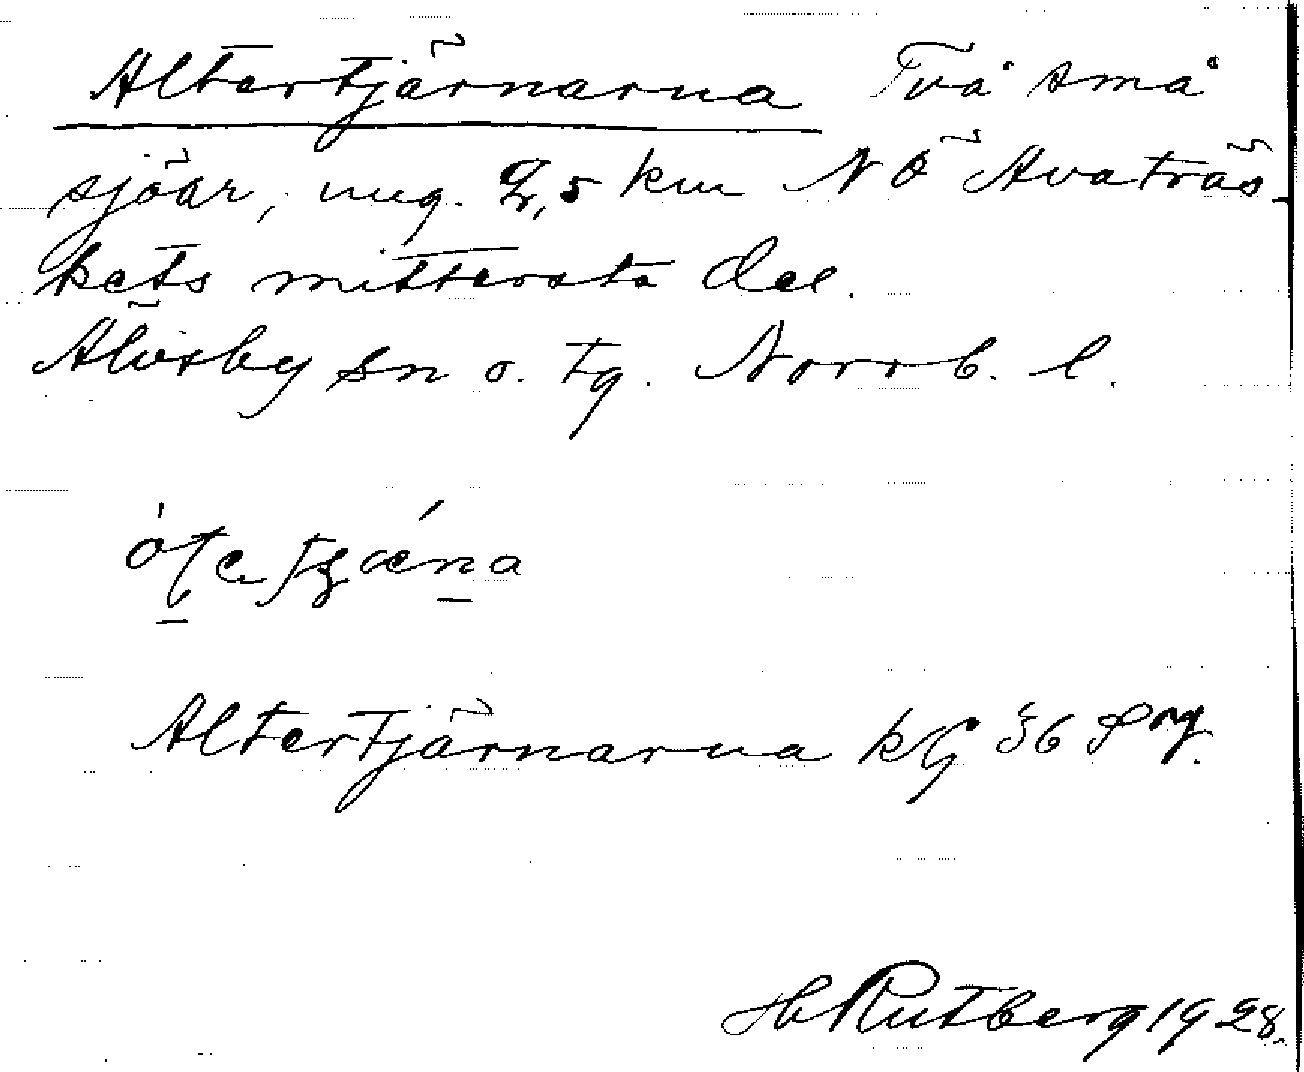 Altertjärnarna Två små
sjöar, ung. 2,5 km NÖ Avaträs-
kets mittersta del.
Älvsby sn o. tg. Norrb. l.
Altertjärnarna kG 36 Srg.
H Rutberg 1928.